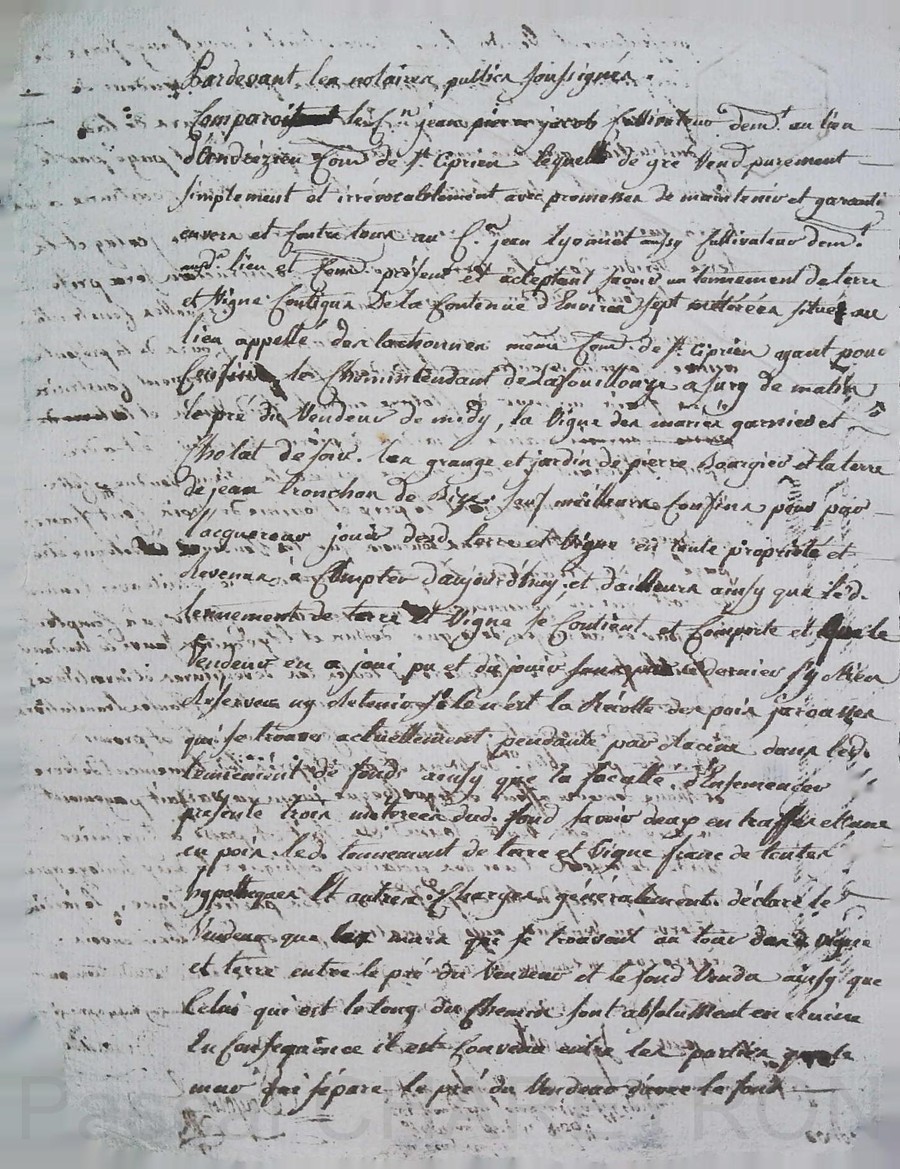 Pardevant les notaires publics soussignés.
Comparoit le C.n jean pierre jacob Cultivateur dem.t au lieu
d'Andrézieu Com.e de S.t Ciprien lequel de gré vend purement
simplement et irrevocablement avec promesses de maintenir et garantir
envers et Contre tous au C.en jean Lyonnet aussy Cultivateur dem.t
aud.t lieu et Com.e présent et acceptant savoir un tennement de terre
et Vigne Contigus De la Contenue d'Environ sept métérées situé au
lieu appellé des même Com.e de S.t Ciprien ayant pour
Confins le Chemin tendant de La fouillouze a Sury de matin
le pré du Vendeur de midy, la Vigne des mariés garnier et
Cholat de soir. les grange et jardin de pierre Bourgier et la terre
de jean Tronchon de Bize sauf meilleurs Confins pour par
lacquereur jouir desd. terre et Vigne en toute propriété et
revenus à Compter d'aujourd'huy, et d'ailleurs ainsy que led.
tennement de terre et Vigne se Contient et Comporte et que le
Vendeur en a joui pu et du jouir sans par ce dernier s'y Rien
Reserver ny Retenir si ce n'est la Récolte des pois jarousses
qui se trouve actuellement pendante par Racine dans led.
tennement de fonds ainsy que la faculté d'Ensemencer
trois métérées dud. fond savoir deux en truffes et une
en pois led. tennement de terre et Vigne franc de toutes
hypotheques Et autres Charges généralement. déclare le
Vendeur que les murs qui se trouvent au tour des d. vigne
et terre entre le pré du Vendeur et le fond Vendu ainsy que
Celui qui est le long du Chemin sont absolument en Ruine
En Conséquence il est Convenu entre les parties que le
mur qui sépare le pré du Vendeur d'avec le fond
Pascal CHAMBRON